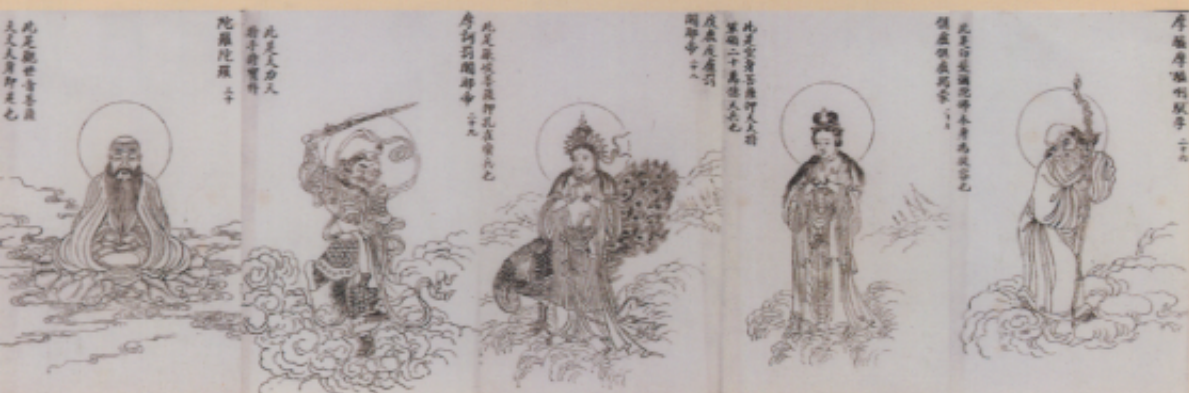 摩醯摩醯唎馱孕 二十六
俱盧俱盧羯蒙
此是空身菩薩押天大將
軍領二十萬億天兵也
度盧度盧罰
闍耶帝 二十八
此是嚴峻菩薩押孔雀蠻兵也
摩訶罰闍耶帝 二十九
此是大力天
將手持寶杵
陀羅陀羅 三十
此是觀世音菩薩
大丈夫身即是也